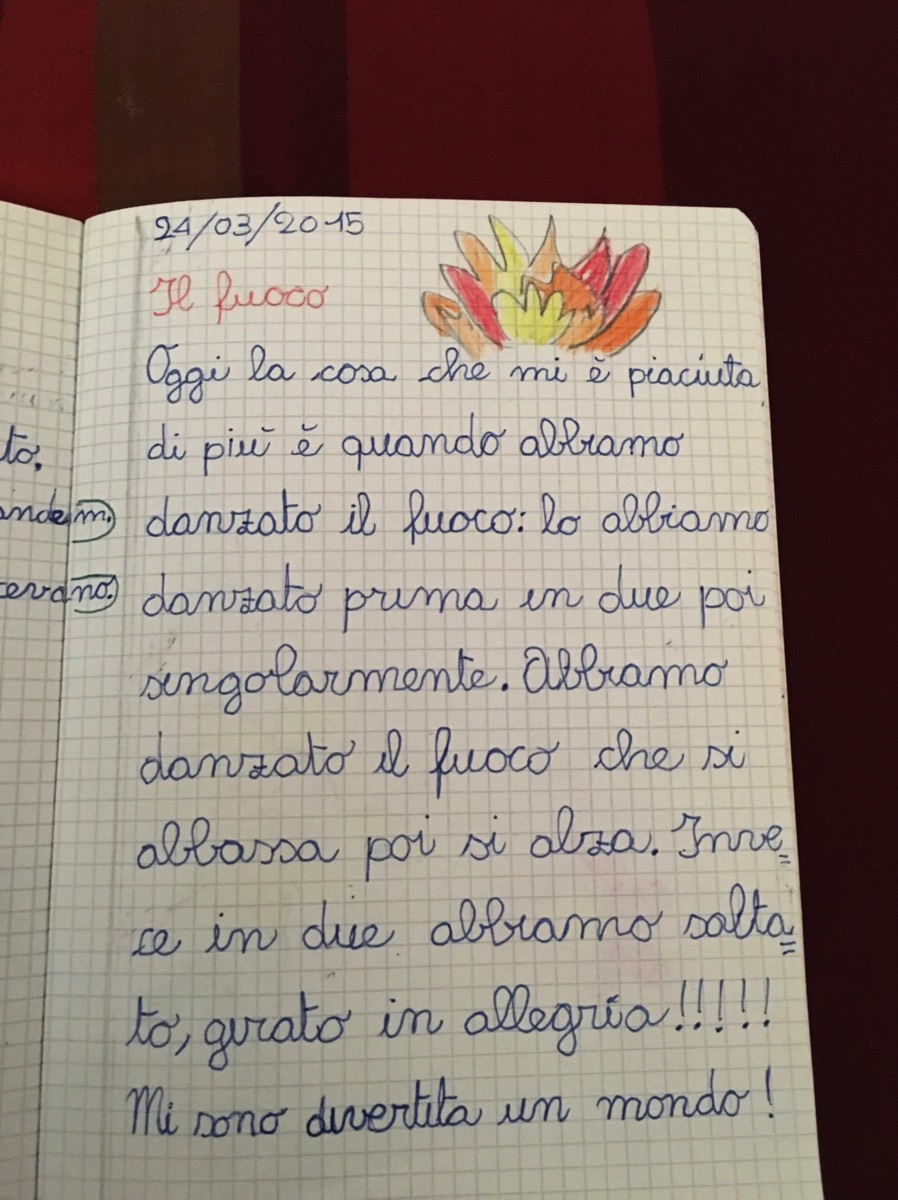 to.
24/03/2015
Il fuoco
Oggi la cosa che mi è piaciuta
di più è quando abbiamo
danzato il fuoco: lo abbiamo
danzato prima in due poi
singolarmente. Abbiamo
danzato il fuoco che si
abbassa poi si alza. Inve=
ce in due abbiamo salta=
to, girato in allegria!!!!!
Mi sono divertita un mondo!